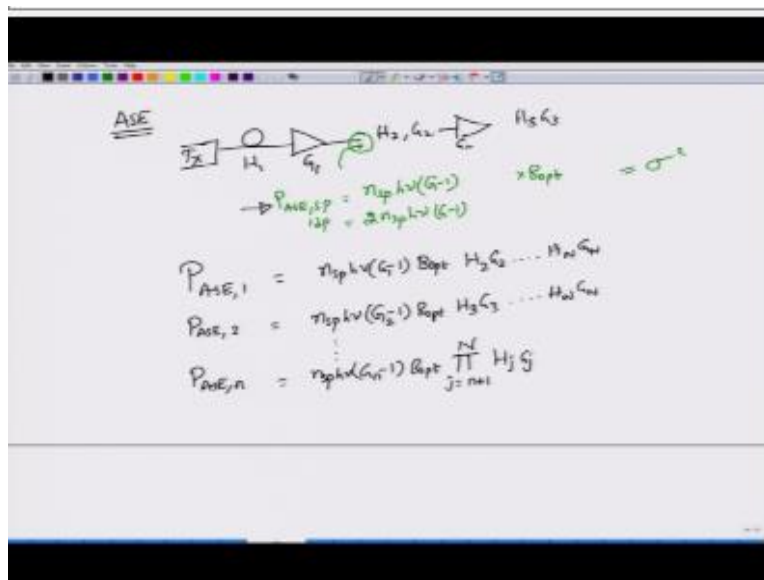 ASE
Tx H₁ G₁ H₂, G₂ H₃ G₃
P_ASE,sp = n_sp hν(G-1) × B_opt = σ²
= 2 n_sp hν (G-1)
P_ASE,1 = n_sp hν(G₁-1) B_opt H₂ G₂ ..... H_N G_N
P_ASE,2 = n_sp hν(G₂-1) B_opt H₃ G₃ ..... H_N G_N
P_ASE,n = n_sp hν(G_n-1) B_opt ∏_{j=n+1}^{N} H_j G_j